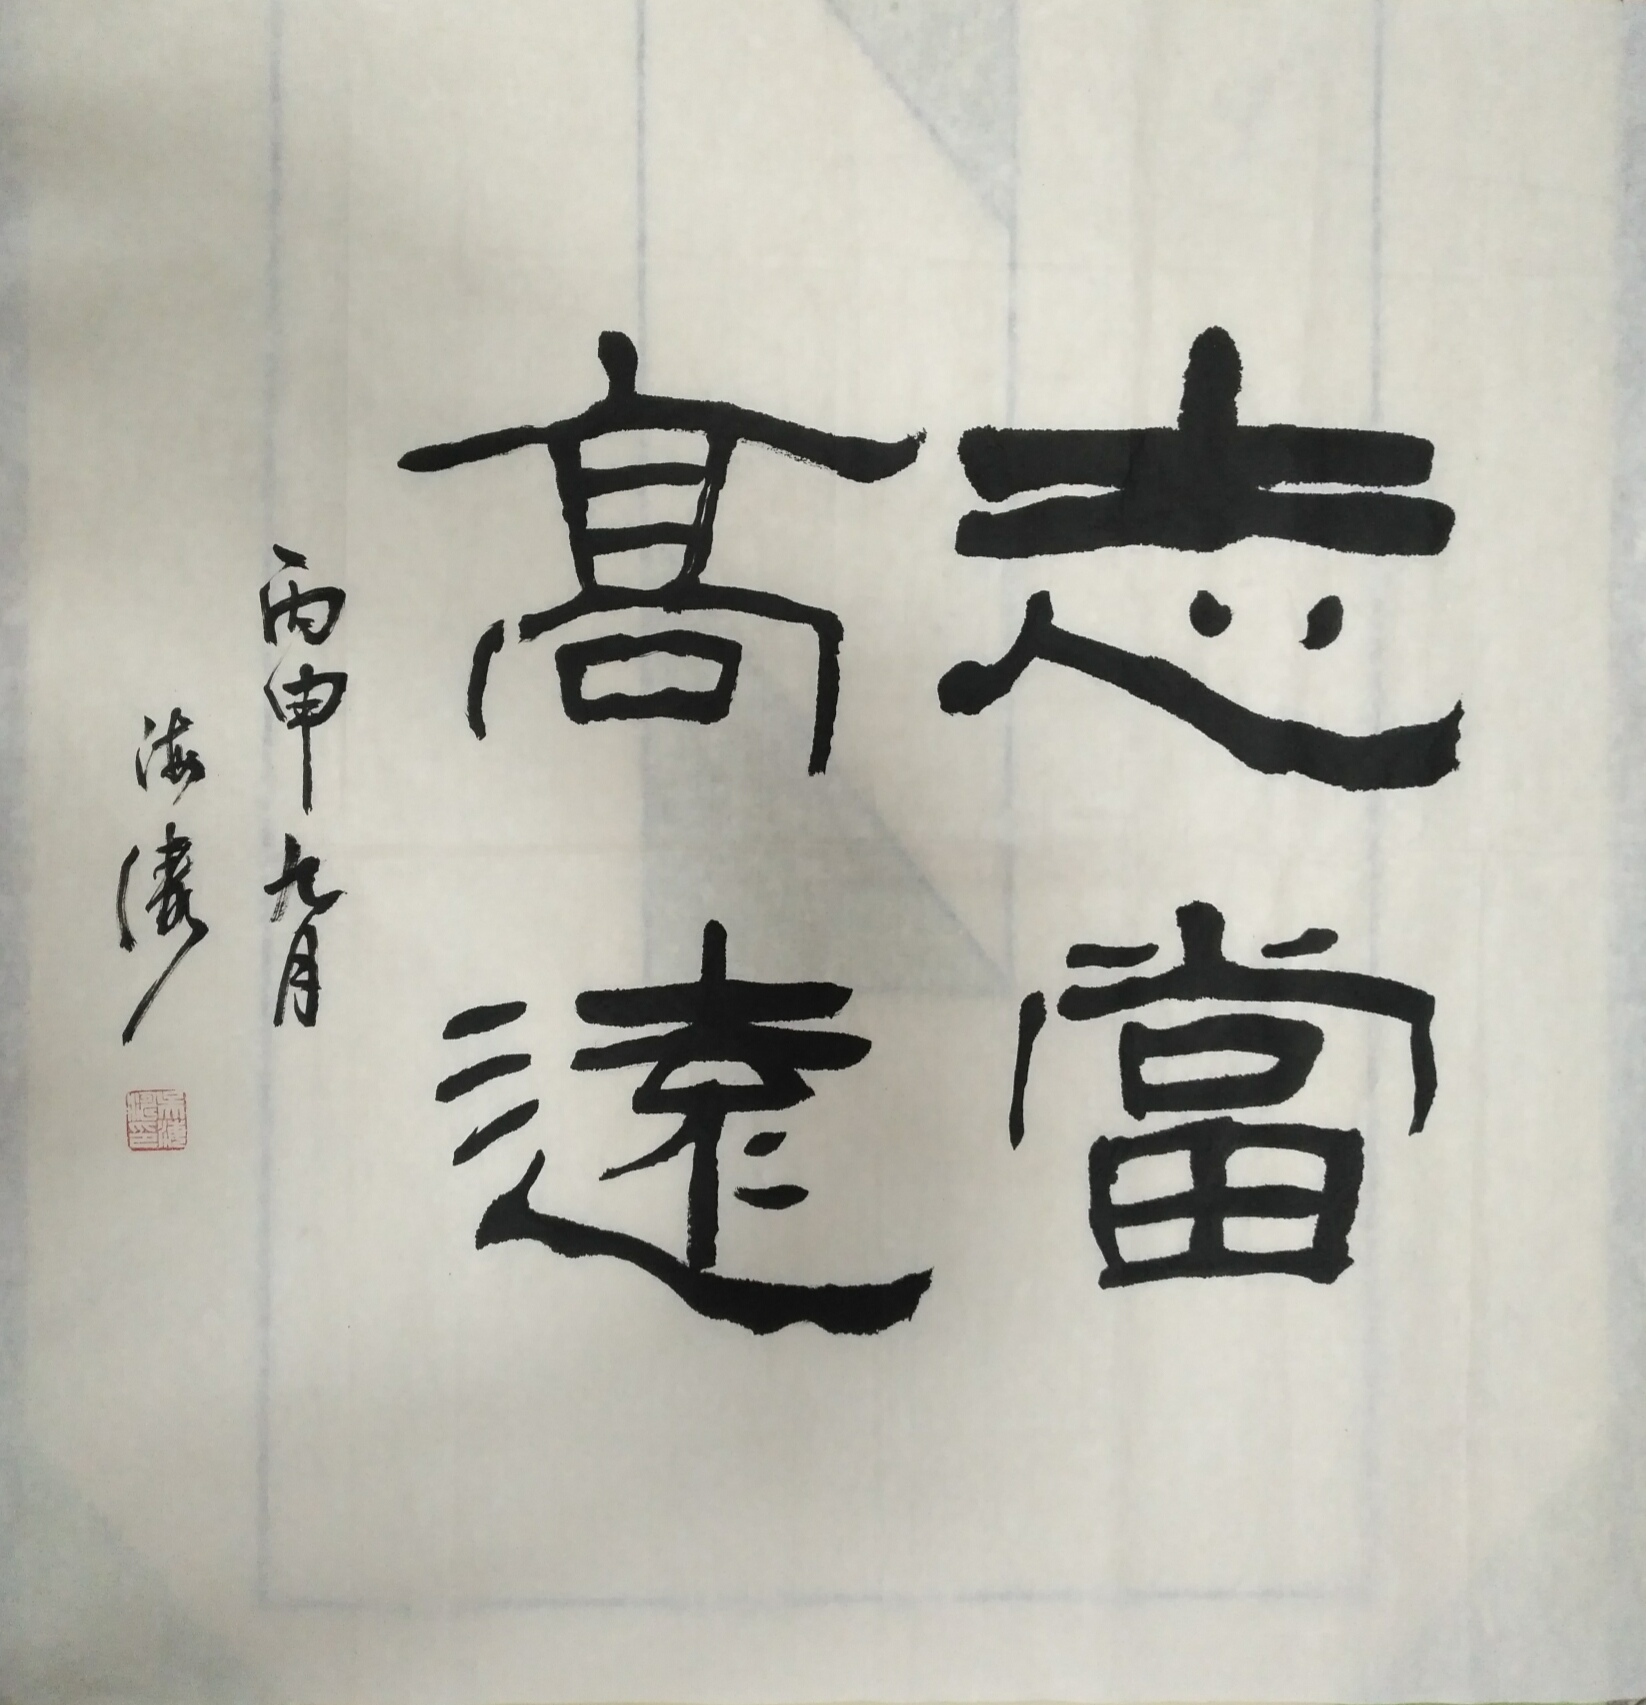 志當
髙遠
丙申九月
海濤